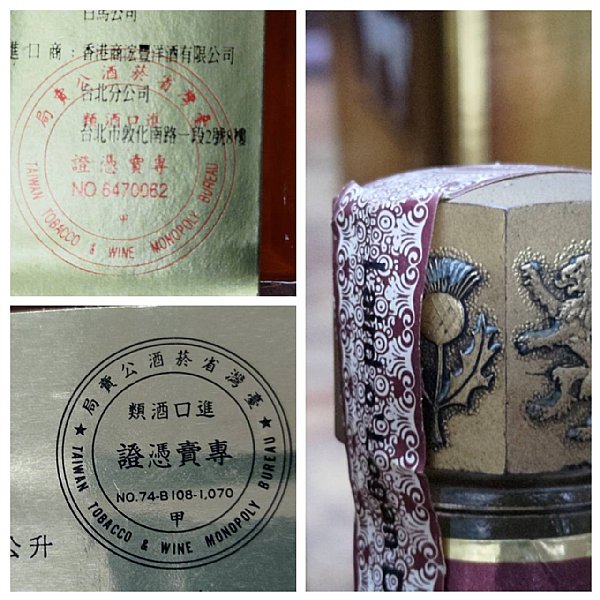 白馬公司
進口商：香港商 豐洋酒有限公司
台北分公司
台北市敦化南路一段2號8樓
臺灣省菸酒公賣局
進口酒類
專賣憑證
NO 6470062
甲
TAIWAN TOBACCO & WINE MONOPOLY BUREAU
臺灣省菸酒公賣局
進口酒類
專賣憑證
NO.74-B108-1,070
甲
★ TAIWAN TOBACCO & WINE MONOPOLY BUREAU ★
公升